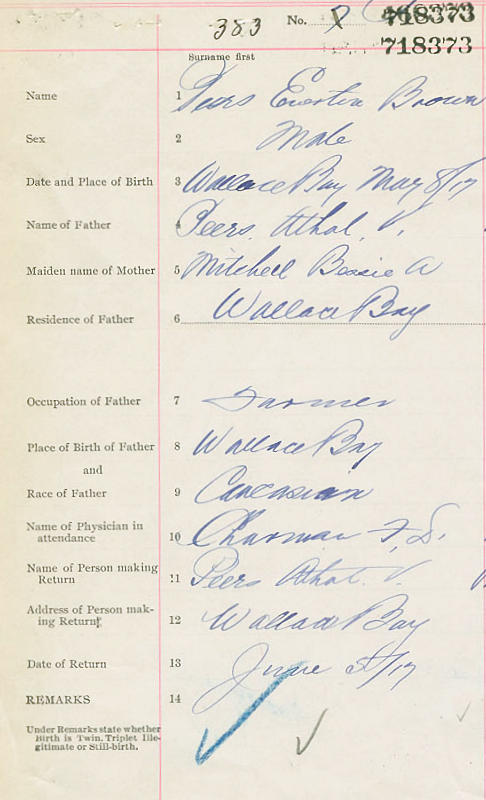 383 No. P 718373
718373
Surname first
Name 1 Pears Everton Brown
Sex 2 Male
Date and Place of Birth 3 Wallace Bay May 8/17
Name of Father 4 Peers Athol. V.
Maiden name of Mother 5 Mitchell Bessie A
Residence of Father 6 Wallace Bay
Occupation of Father 7 Farmer
Place of Birth of Father 8 Wallace Bay
and
Race of Father 9 Caucasian
Name of Physician in
attendance 10 F, D.
Name of Person making
Return 11 Peers Athol. V.
Address of Person mak-
ing Return 12 Wallace Bay
Date of Return 13 June /17
REMARKS 14
Under Remarks state whether
Birth is Twin. Triplet Ille-
gitimate or Still-birth.